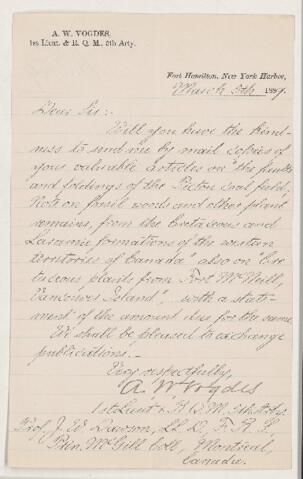 A. W. VOGDES,
1st Lieut. & R. Q. M., 5th Arty.
Fort Hamilton, New York Harbor,
March 5th 1889.
Dear Sir:.
Will you have the kind-
ness to send me by mail copies of
your valuable articles on "the faults
and foldings of the Pictou coal field.
Note on fossil woods and other plant
remains, from the Cretaceous and
Laramie formations of the western
territories of Canada" also on "Cre-
taceous plants from Port McNeill,
Vancouver Island", with a state-
ment of the amount due for the same.
We shall be pleased to exchange
publications.—
Very respectfully,
A. W. Vogdes
1st Lieut & R. Q. M. 5th Arty.
Prof. J. W. Dawson, LL. D., F. R. S.,
Prin. McGill Coll., Montreal,
Canada.